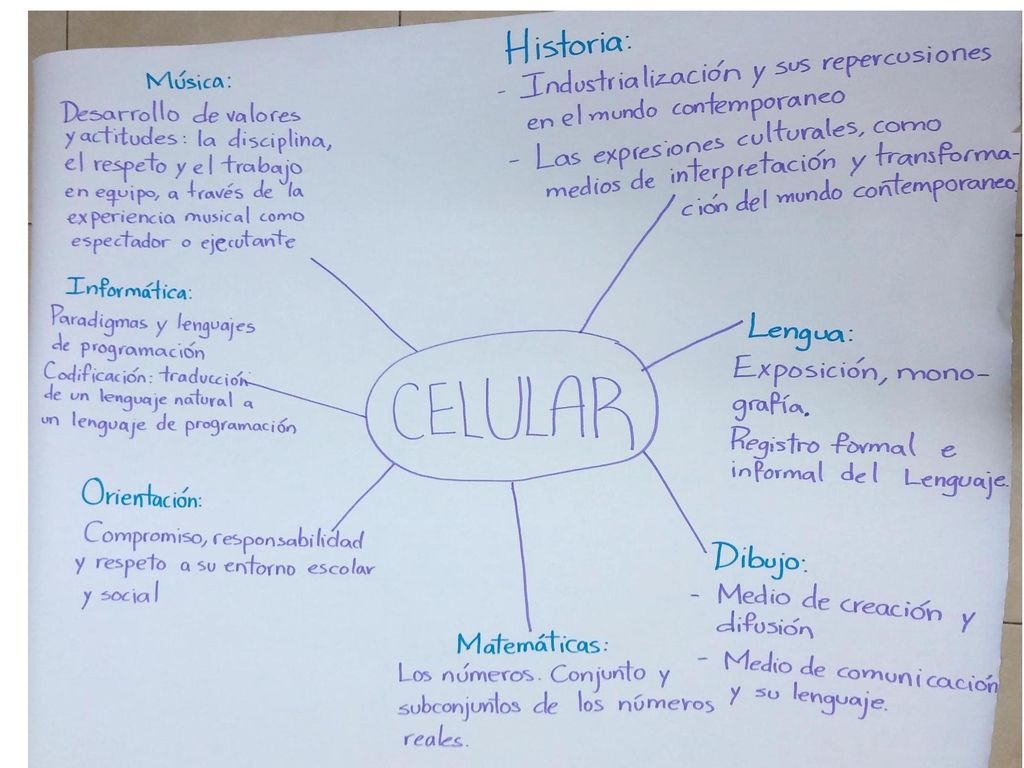 Música:
Desarrollo de valores
y actitudes: la disciplina,
el respeto y el trabajo
en equipo, a través de la
experiencia musical como
espectador o ejecutante
Historia:
- Industrialización y sus repercusiones
en el mundo contemporaneo
- Las expresiones culturales, como
medios de interpretación y transforma-
ción del mundo contemporaneo.
Informática:
Paradigmas y lenguajes
de programación
Codificación: traducción
de un lenguaje natural a
un lenguaje de programación
CELULAR
Lengua:
Exposición, mono-
grafía.
Registro formal e
informal del Lenguaje.
Orientación:
Compromiso, responsabilidad
y respeto a su entorno escolar
y social
Matemáticas:
Los números. Conjunto y
subconjuntos de los números
reales.
Dibujo:
- Medio de creación y
difusión
- Medio de comunicación
y su lenguaje.